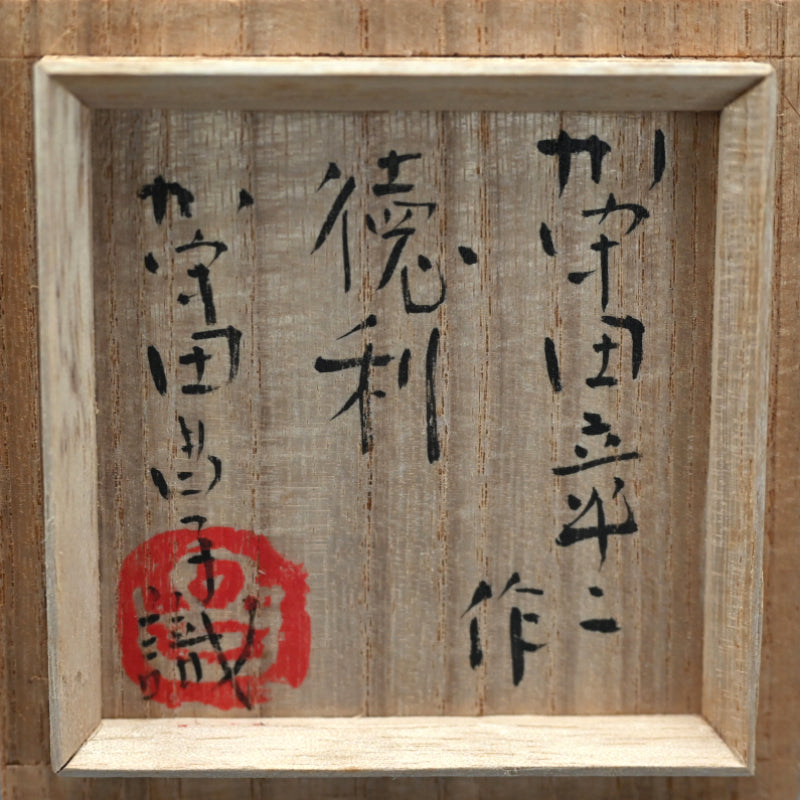 加守田章二
作
徳利
加守田昌子識